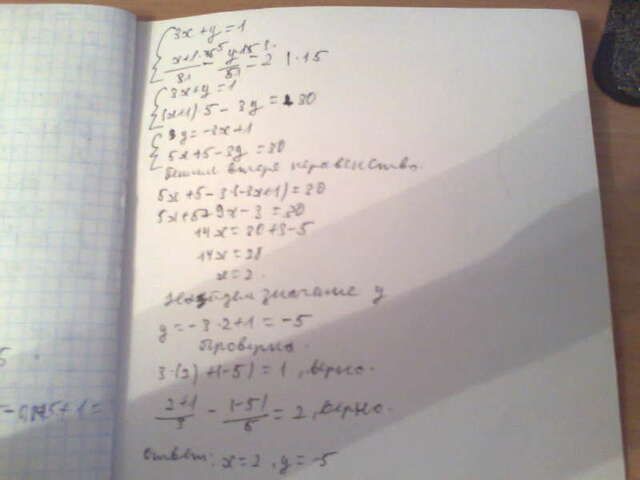 3x+y=1
x+1/3 - y/5 = 2 |·15
3x+y=1
(x+1)5-3y=30
y=-3x+1
5x+5-3y=30
Решим второе неравенство.
5x+5-3(-3x+1)=30
5x+5+9x-3=30
14x=30+3-5
14x=28
x=2.
Найдем значение y
y=-3·2+1=-5
Проверка.
3·(2)+(-5)=1, верно.
2+1/3 - (-5)/5 = 2, верно.
Ответ: x=2, y=-5